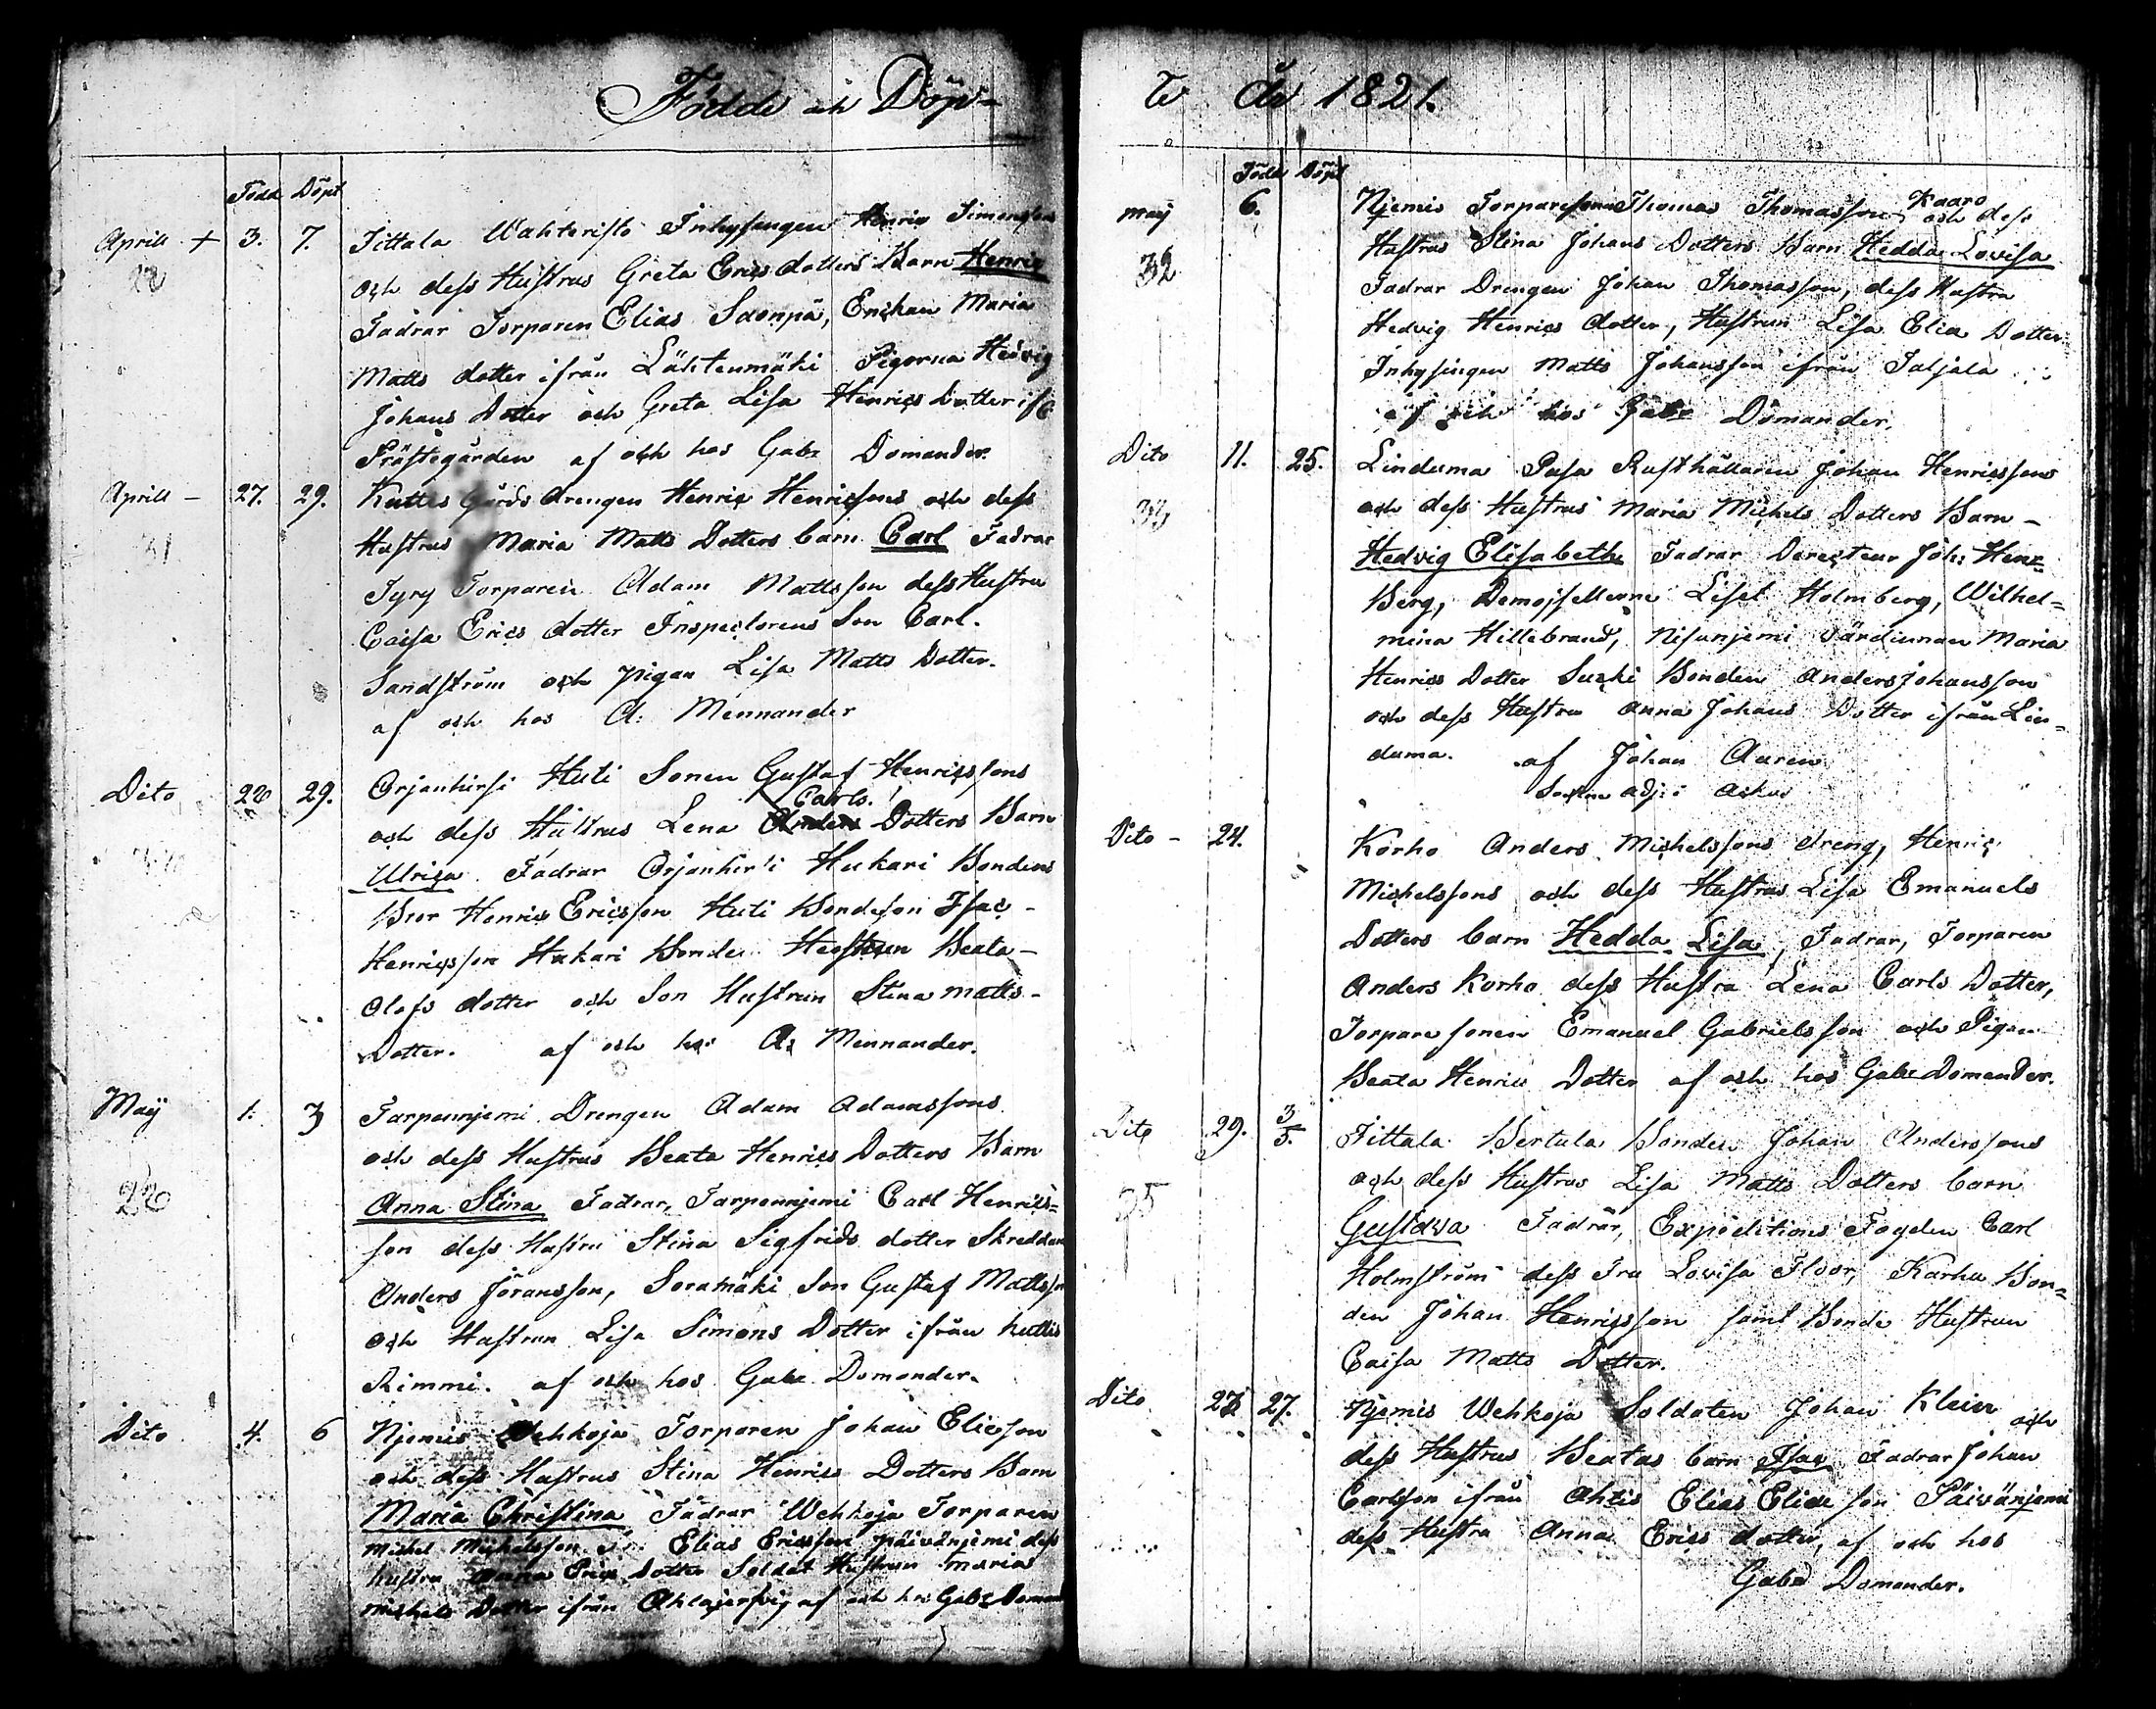 Födde och Döp-
Född Döpt
Aprill + 3. 7. Tittala Wahteristo Inhysingen Henric Simonssons
och dess Hustrus Greta Erics dotters Barn Henric
Fadrar Torparen Elias Saonpä, Enckan Maria
Matts dotter ifrån Lähtenmäki Pigorna Hedvig
Johans Dotter och Greta Lisa Henrics Dotter ifr
Prästegården af och hos Gabr Domander.
Aprill - 27. 29. Kuttis Gårds drengen Henric Henricssons och dess
31
Hustrus Maria Matts Dotters barn Carl Fadrar
Jyry Torparen Adam Mattsson dess Hustru
Caisa Erics dotter Inspectorens Son Carl.
Sandström och pigan Lisa Matts Dotter.
af och hos A: Mennander
Dito 22 29. Orjanhirsi Huti Sonen Gustaf Henricssons
Carls.
och dess Hustrus Lena Anders Dotters Barn
Ulrica. Fadrar Orjanhirsi Hukari Bondens
Bror Henric Ericsson Huti Bondeson Isac -
Henricsson Hukari Bonde Hustrun Beata -
Olofs dotter och Son Hustrun Stina Matts -
Dotter. af och hos A: Mennander.
May 1. 3 Tarpennjemi Drengen Adam Adamssons
och dess Hustrus Beata Henrics Dotters Barn
Anna Stina Fadrar, Tarpennjemi Carl Henrics=
son dess Hustru Stina Sigfrids dotter Skreddaren
Anders Jöransson, Soramäki Son Gustaf Mattsson
och Hustrun Lisa Simons Dotter ifrån Kuttis
Rimmi. af och hos Gabr. Domander.
Dito 4. 6 Njemis Wehkoja Torparen Johan Eliesson
och dess Hustrus Stina Henrics Dotters Barn
Maria Christina Fadrar Wehkoja Torparen
Michel Michelsson Elias Ericsson päivänjemi dess
hustru Anna Erics Dotter Soldat Hustrun Marias
Michels Dotter ifrån Ahlajerfvi af och hos Gabr Domand
te År 1821.
Född Döpt
May 6. Njemis Torparesonen Thomas Thomasson Kaaro och dess
32
Hustrus Stina Johans Dotters Barn Hedda Lovisa
Fadrar Drengen Johan Thomasson, dess Hustru
Hedvig Henrics dotter, Hustrun Lisa Elias Dotter.
Inhysingen Matts Johansson ifrån Taljala
af och hos Gabr Domander.
Dito 11. 25. Linduma Pasa Rusthållaren Johan Henricssons
33
och dess Hustrus Maria Michels Dotters Barn -
Hedvig Elisabeth Fadrar Directeur Joh: Henr
Berg, Demoisellerne Liset Holmberg, Wilhel=
mina Hillebrand, Nisunjemi värdinnan Maria
Henrics Dotter Suzki Bonden Anders Johansson
och dess Hustru Anna Johans Dotter ifrån Lin=
duma. af Johan Auren
Sockne adj: i
Dito - 24. Korho Anders Michelssons dreng, Henric
Michelssons och dess Hustrus Lisa Emanuels
Dotters barn Hedda Lisa, Fadrar, Torparen
Anders Korho dess Hustru Lena Carls Dotter,
Torpare sonen Emanuel Gabrielsson och Pigan
Beata Henrics Dotter af och hos Gabr Domander.
Dito 29. 3/5. Tittala Bertula Bonden Johan Anderssons
35
och dess Hustrus Lisa Matts Dotters barn
Gustava Fadrar, Expeditions Fogden Carl
Holmström dess Fru Lovisa Floor, Karhu Bon=
den Johan Henricsson samt Bonde Hustrun
Caisa Matts Dotter.
Dito 27. 27. Njemis Wehkoja Soldaten Johan Klein och
dess Hustrus Beatas barn Isac Fadrar Johan
Carlsson ifrån Ahtis Elias Elias son Päivänjemi
dess Hustru Anna Erics dotter, af och hos
Gabr Domander.